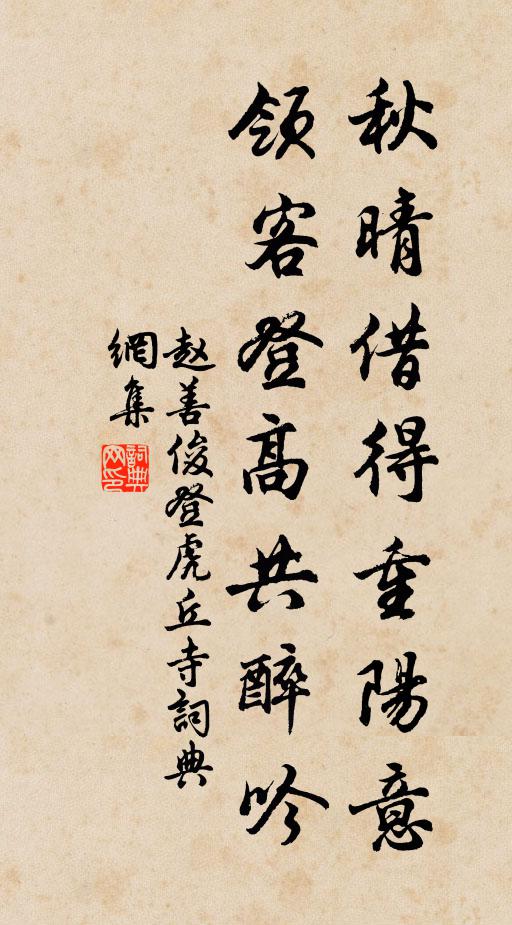 秋晴借得重陽意
領客登高共醉吟
赵善俊登虎丘寺詞典
網集
詞典
网印